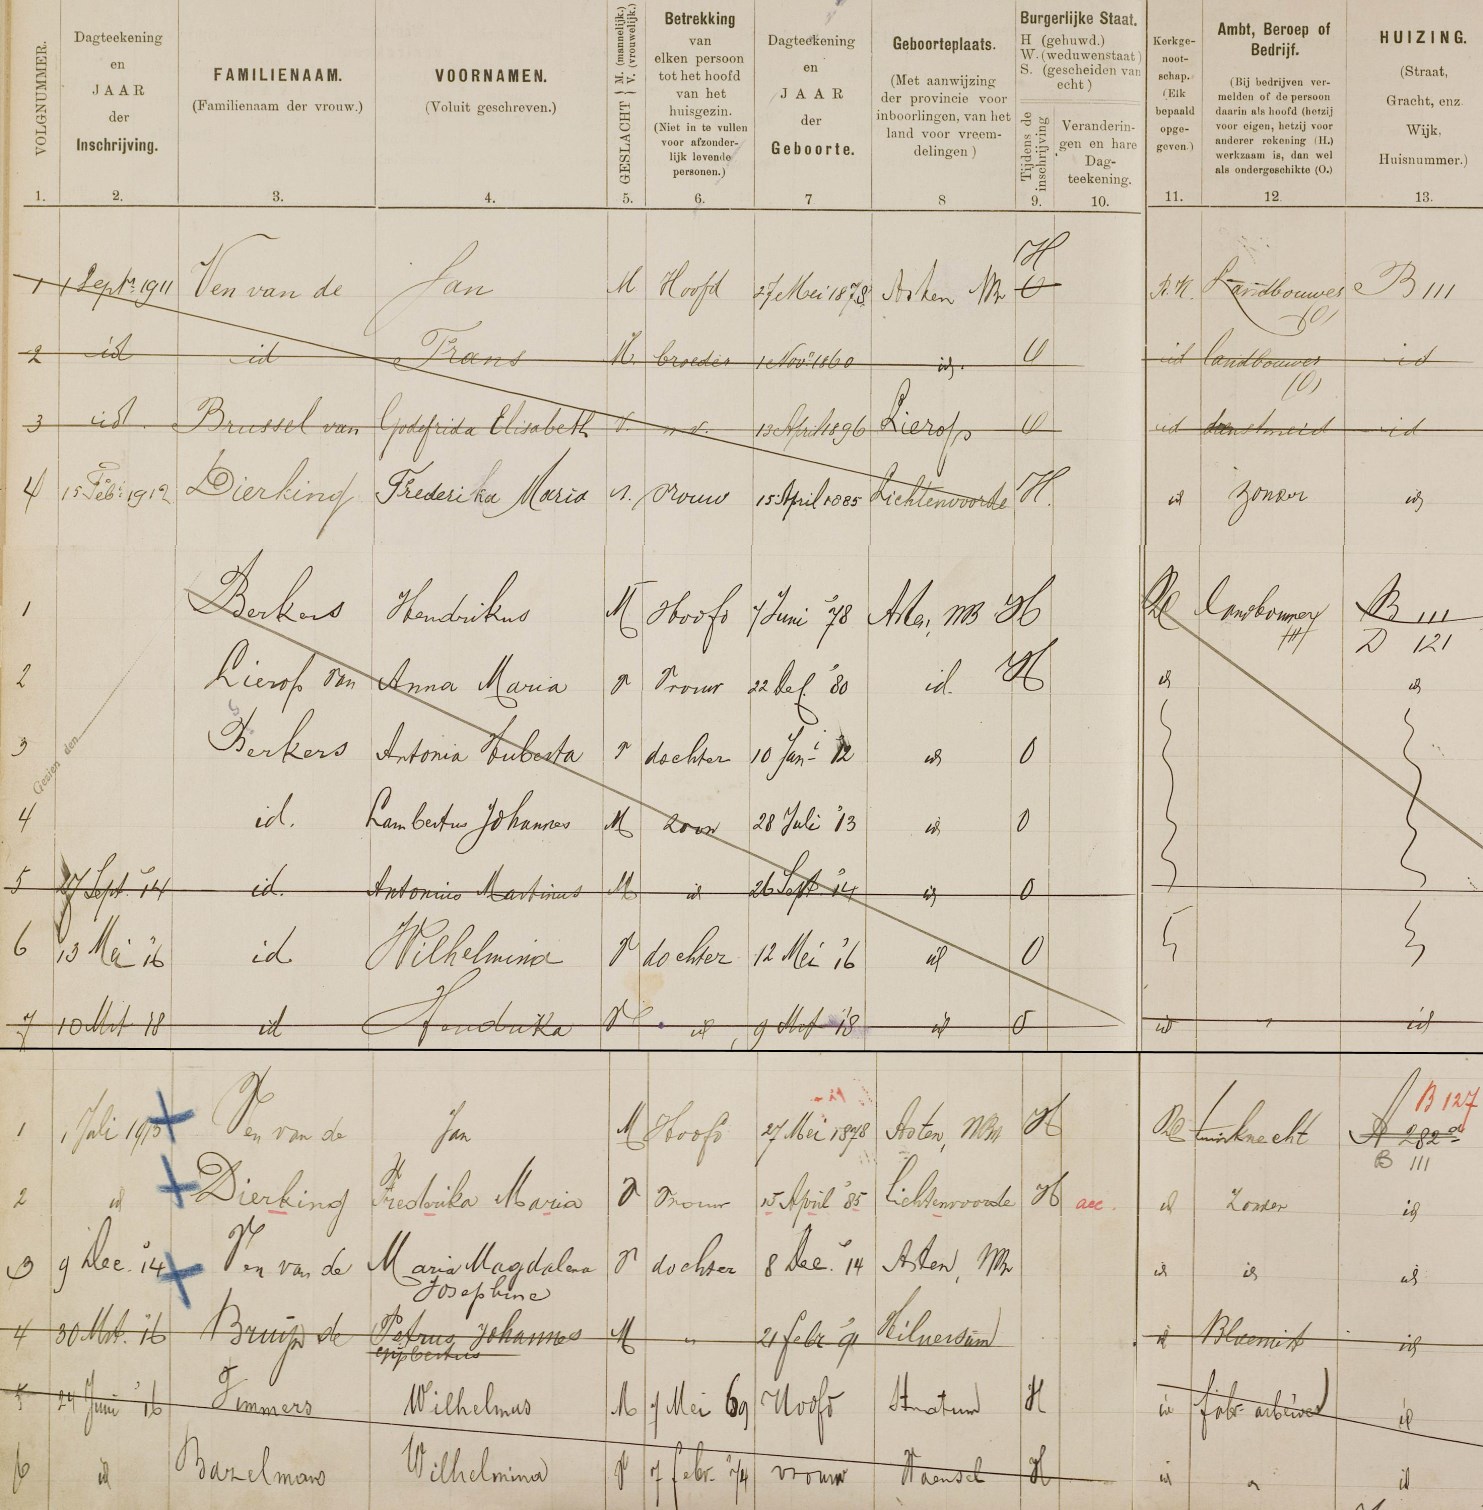 VOLGNUMMER.
Dagteekening en JAAR der Inschrijving.
FAMILIENAAM.
(Familienaam der vrouw.)
VOORNAMEN.
(Voluit geschreven.)
GESLACHT M. (mannelijk.) V. (vrouwelijk.)
Betrekking van elken persoon tot het hoofd van het huisgezin.
(Niet in te vullen voor afzonderlijk levende personen.)
Dagteekening en JAAR der Geboorte.
Geboorteplaats.
(Met aanwijzing der provincie voor inboorlingen, van het land voor vreemdelingen)
Burgerlijke Staat.
H (gehuwd.)
W. (weduwenstaat)
S. (gescheiden van echt)
Tijdens de inschrijving
Veranderingen en hare Dagteekening.
Kerkgenootschap. (Elk bepaald opgegeven.)
Ambt, Beroep of Bedrijf.
(Bij bedrijven vermelden of de persoon daarin als hoofd (hetzij voor eigen, hetzij voor anderer rekening (H.) werkzaam is, dan wel als ondergeschikte (O.)
HUIZING.
(Straat, Gracht, enz. Wijk, Huisnummer.)
1. 2. 3. 4. 5. 6. 7 8 9. 10. 11. 12. 13.
1 1 Sept. 1911 Ven van de Jan M Hoofd 27 Mei 1878 Asten NBr H O R.K. Landbouwer (O) B 111
2 id id Frans M. broeder 1 Nov. 1860 id. O id landbouwer (O) id
3 id. Brussel van Godefrida Elisabeth V. 13 April 1896 Lierop O id dienstmeid id
4 15 Feb. 1912 Dierking Frederika Maria V. vrouw 15 April 1885 Lichtenvoorde H. id zonder id
1 Berkers Hendrikus M Hoofd 7 Juni '78 Asten, NB H RK landbouwer (H) B 111
D 121
2 Lierop van Anna Maria V Vrouw 22 Dec. '80 id. H id id
Gezien den
3 Berkers Antonia Huberta V dochter 10 Jan. '12 id O
4 id. Lambertus Johannes M zoon 28 Juli '13 id O
5 27 Sept. '14 id. Antonius Martinus M id 26 Sept. '14 id O
6 13 Mei '16 id. Wilhelmina V dochter 12 Mei '16 id O
7 10 Mrt '18 id Hendrika V id 9 Mrt '18 id O id " id
1 1 Juli 1913 Ven van de Jan M Hoofd 27 Mei 1878 Asten, NBr H RK tuinknecht A 282a B 127
B 111
2 id Dierking Frederika Maria V Vrouw 15 April '85 Lichtenvoorde H acc. id Zonder id
3 9 Dec. '14 Ven van de Maria Magdalena V dochter 8 Dec. '14 Asten, NBr id id id
Josephine
4 30 Mrt. '16 Bruijn de Petrus Johannes M " 21 febr '91 Hilversum id Bloemist id
Gijsbertus
5 24 Juni '16 Timmers Wilhelmus M 7 Mei 69 Hoofd Stratum H id fabr arbeider id
6 id Bazelmans Wilhelmina V 7 febr. '74 vrouw Woensel H id " id